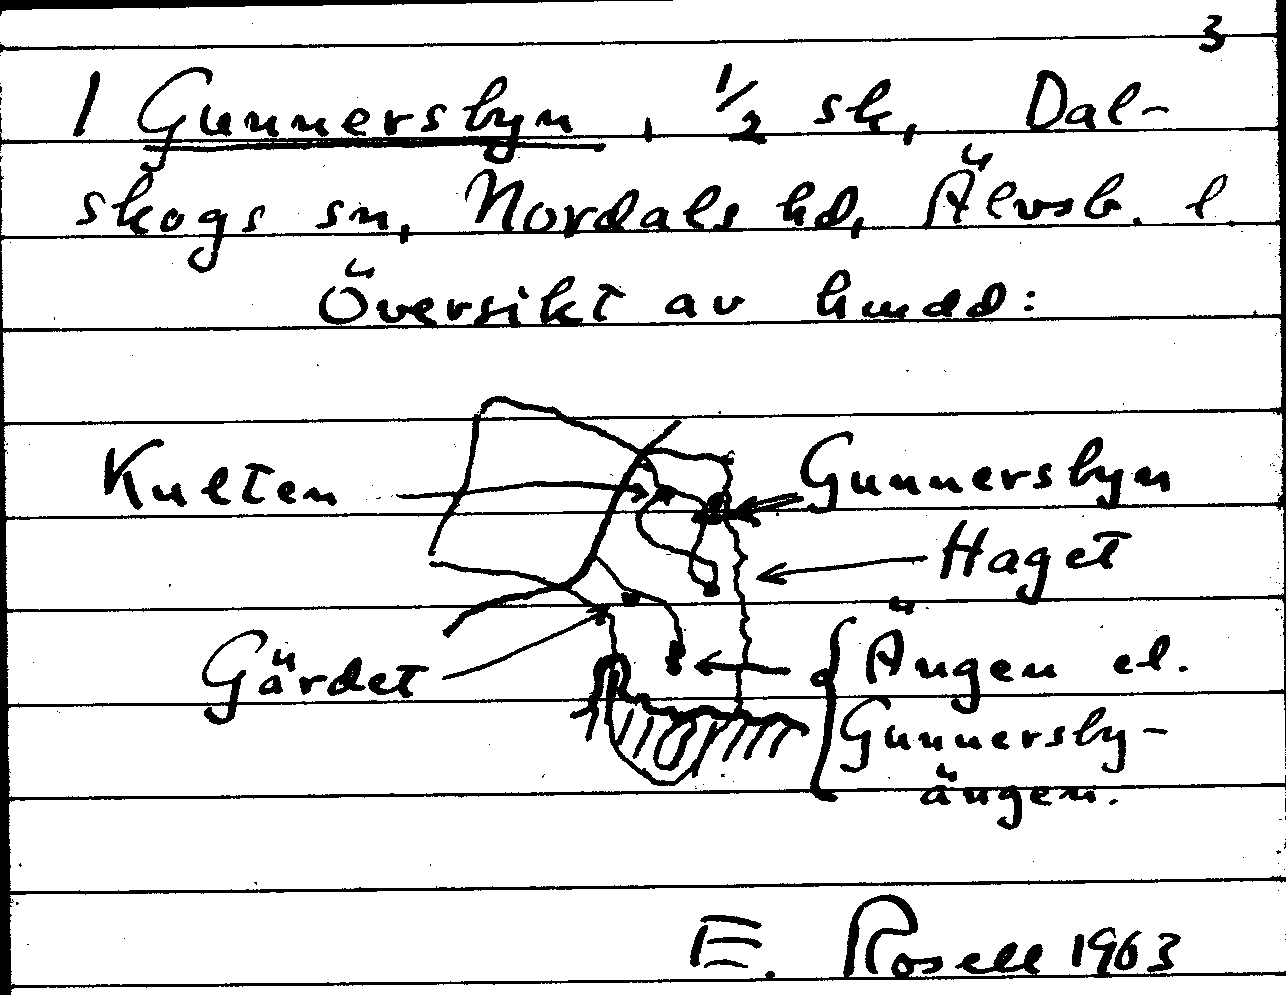 3
1 Gunnersbyn, 1/2 sk, Dal-
skogs sn, Nordals hd, Älvsb. l.
Översikt av hmdd:
Kulten
Gunnersbyn
Haget
Gärdet
Ängen el.
Gunnersby-
ängen.
E. Rosell 1963